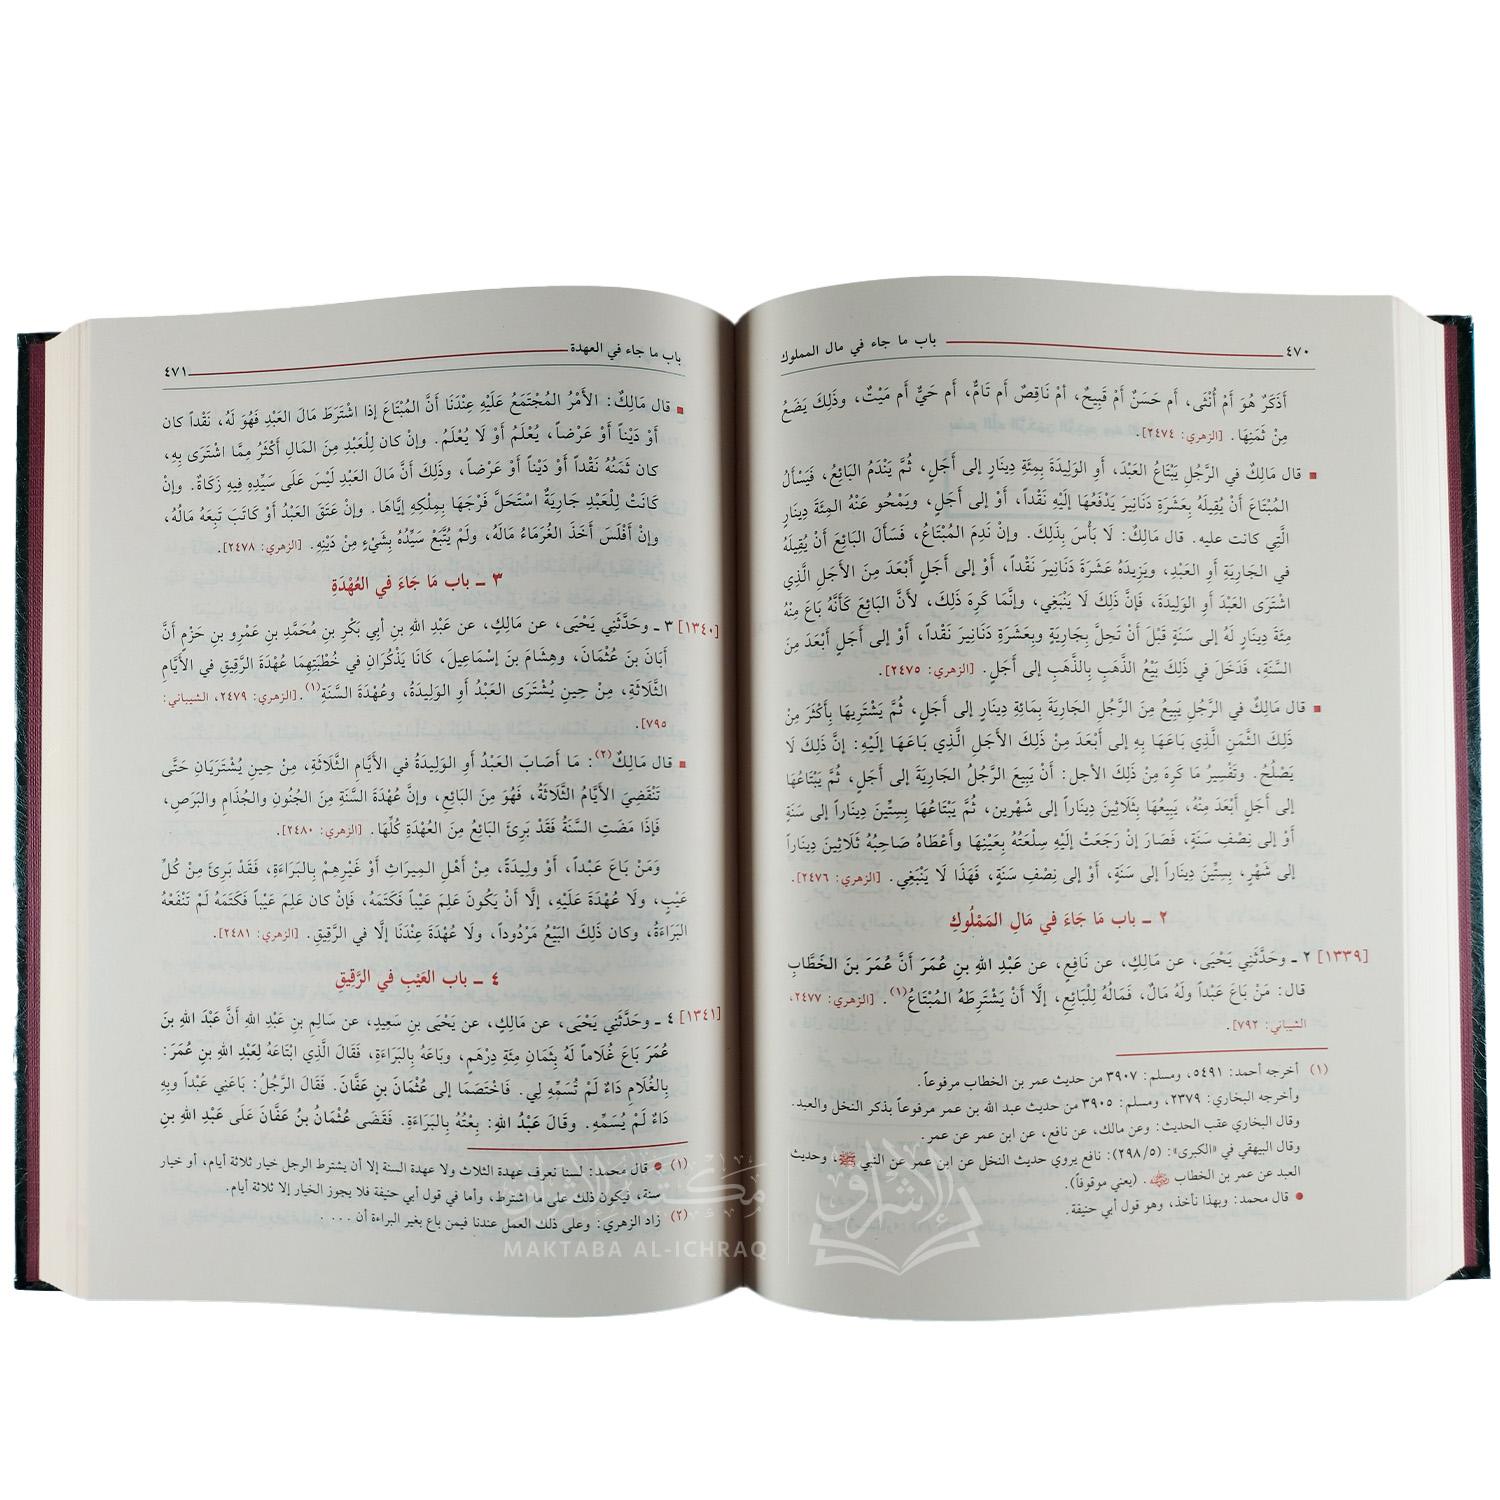 ٤٧٠ باب ما جاء في مال المملوك
أَذَكَرٌ هُوَ أَمْ أُنْثَى، أَم حَسَنٌ أَمْ قَبِيحٌ، أَمْ نَاقِصٌ أَم تَامٌّ، أَم حَيٌّ أَم مَيْتٌ، وذَلِكَ يَضَعُ
مِنْ ثَمَنِهَا. [الزهري: ٢٤٧٤].
■ قال مَالِكٌ في الرَّجُلِ يَبْتَاعُ العَبْدَ، أَوِ الوَلِيدَةَ بِمِئَةِ دِينَارٍ إلى أَجَلٍ، ثُمَّ يَنْدَمُ البَائِعُ، فَيَسْأَلُ
المُبْتَاعَ أَنْ يُقِيلَهُ بِعَشَرَةِ دَنَانِيرَ يَدْفَعُهَا إلَيْهِ نَقْداً، أَوْ إلى أَجَلٍ، ويَمْحُو عَنْهُ المِئَةَ دِينَارٍ
الَّتِي كانت عليه. قال مَالِكٌ: لَا بَأْسَ بِذَلِكَ. وإنْ نَدِمَ المُبْتَاعُ، فَسَأَلَ البَائِعَ أَنْ يُقِيلَهُ
في الجَارِيَةِ أَوِ العَبْدِ، ويَزِيدَهُ عَشَرَةَ دَنَانِيرَ نَقْداً، أَوْ إلى أَجَلٍ أَبْعَدَ مِنَ الأَجَلِ الَّذِي
اشْتَرَى العَبْدَ أَوِ الوَلِيدَةَ، فَإنَّ ذَلِكَ لَا يَنْبَغِي، وإنَّمَا كَرِهَ ذَلِكَ، لأَنَّ البَائِعَ كَأَنَّهُ بَاعَ مِنْهُ
مِئَةَ دِينَارٍ لَهُ إلى سَنَةٍ قَبْلَ أَنْ تَحِلَّ بِجَارِيَةٍ وبِعَشَرَةِ دَنَانِيرَ نَقْداً، أَوْ إلى أَجَلٍ أَبْعَدَ مِنَ
السَّنَةِ، فَدَخَلَ في ذَلِكَ بَيْعُ الذَّهَبِ بِالذَّهَبِ إلى أَجَلٍ. [الزهري: ٢٤٧٥].
■ قال مَالِكٌ في الرَّجُلِ يَبِيعُ مِنَ الرَّجُلِ الجَارِيَةَ بِمَائِةِ دِينَارٍ إلى أَجَلٍ، ثُمَّ يَشْتَرِيهَا بِأَكْثَرَ مِنْ
ذَلِكَ الثَّمَنِ الَّذِي بَاعَهَا بِهِ إلى أَبْعَدَ مِنْ ذَلِكَ الأَجَلِ الَّذِي بَاعَهَا إلَيْهِ: إنَّ ذَلِكَ لَا
يَصْلُحُ. وتَفْسِيرُ مَا كَرِهَ مِنْ ذَلِكَ الأجل: أَنْ يَبِيعَ الرَّجُلُ الجَارِيَةَ إلى أَجَلٍ، ثُمَّ يَبْتَاعُهَا
إلى أَجَلٍ أَبْعَدَ مِنْهُ، يَبِيعُهَا بِثَلَاثِينَ دِينَاراً إلى شَهْرٍ، ثُمَّ يَبْتَاعُهَا بِسِتِّينَ دِينَاراً إلى سَنَةٍ
أَوْ إلى نِصْفِ سَنَةٍ، فَصَارَ إنْ رَجَعَتْ إلَيْهِ سِلْعَتُهُ بِعَيْنِهَا وأَعْطَاهُ صَاحِبُهُ ثَلَاثِينَ دِينَاراً
إلى شَهْرٍ، بِسِتِّينَ دِينَاراً إلى سَنَةٍ، أَوْ إلى نِصْفِ سَنَةٍ، فَهَذَا لَا يَنْبَغِي. [الزهري: ٢٤٧٦].
٢ ـ باب مَا جَاءَ في مَالِ المَمْلُوكِ
[١٣٣٩] ٢ ـ وحَدَّثَنِي يَحْيَى، عن مَالِكٍ، عن نَافِعٍ، عن عَبْدِ اللهِ بنِ عُمَرَ أَنَّ عُمَرَ بنَ الخَطَّابِ
قال: مَنْ بَاعَ عَبْداً ولَهُ مَالٌ، فَمَالُهُ لِلْبَائِعِ، إلَّا أَنْ يَشْتَرِطَهُ المُبْتَاعُ(١). [الزهري: ٢٤٧٧،
الشيباني: ٧٩٢].
(١) أخرجه أحمد: ٥٤٩١، ومسلم: ٣٩٠٧ من حديث عمر بن الخطاب مرفوعاً.
وأخرجه البخاري: ٢٣٧٩، ومسلم: ٣٩٠٥ من حديث عبد الله بن عمر مرفوعاً بذكر النخل والعبد.
وقال البخاري عقب الحديث: وعن مالك، عن نافع، عن ابن عمر عن عمر.
وقال البيهقي في «الكبرى»: (٢٩٨/٥): نافع يروي حديث النخل عن ابن عمر عن النبي ﷺ، وحديث
العبد عن عمر بن الخطاب رضي الله عنه. (يعني موقوفاً).
● قال محمد: وبهذا نأخذ، وهو قول أبي حنيفة.
باب ما جاء في العهدة ٤٧١
■ قال مَالِكٌ: الأَمْرُ المُجْتَمَعُ عَلَيْهِ عِنْدَنَا أَنَّ المُبْتَاعَ إذا اشْتَرَط مَالَ العَبْدِ فَهُوَ لَهُ، نَقْداً كان
أَوْ دَيْناً أَوْ عَرْضاً، يُعْلَمُ أَوْ لَا يُعْلَمُ. وإنْ كان لِلْعَبْدِ مِنَ المَالِ أَكْثَرُ مِمَّا اشْتَرَى بِهِ،
كان ثَمَنُهُ نَقْداً أَوْ دَيْناً أَوْ عَرْضاً، وذَلِكَ أَنَّ مَالَ العَبْدِ لَيْسَ عَلَى سَيِّدِهِ فِيهِ زَكَاةٌ. وإنْ
كَانَتْ لِلْعَبْدِ جَارِيَةٌ اسْتَحَلَّ فَرْجَهَا بِمِلْكِهِ إيَّاهَا. وإنْ عَتَقَ العَبْدُ أَوْ كَاتَبَ تَبِعَهُ مَالُهُ،
وإنْ أَفْلَسَ أَخَذَ الغُرَمَاءُ مَالَهُ، ولَمْ يُتَّبَعْ سَيِّدُهُ بِشَيْءٍ مِنْ دَيْنِهِ. [الزهري: ٢٤٧٨].
٣ ـ باب مَا جَاءَ في العُهْدَةِ
[١٣٤٠] ٣ ـ وحَدَّثَنِي يَحْيَى، عن مَالِكٍ، عن عَبْدِ اللهِ بنِ أَبِي بَكْرِ بنِ مُحَمَّدِ بنِ عَمْرِو بنِ حَزْمٍ أَنَّ
أَبَانَ بنَ عُثْمَانَ، وهِشَامَ بنَ إسْمَاعِيلَ، كَانَا يَذْكُرَانِ في خُطْبَتِهِمَا عُهْدَةَ الرَّقِيقِ في الأَيَّامِ
الثَّلَاثَةِ، مِنْ حِينِ يُشْتَرَى العَبْدُ أَوِ الوَلِيدَةُ، وعُهْدَةَ السَّنَةِ(١). [الزهري: ٢٤٧٩، الشيباني:
٧٩٥].
■ قال مَالِكٌ(٢): مَا أَصَابَ العَبْدُ أَوِ الوَلِيدَةُ في الأَيَّامِ الثَّلَاثَةِ، مِنْ حِينِ يُشْتَرَيَانِ حَتَّى
تَنْقَضِيَ الأَيَّامُ الثَّلَاثَةُ، فَهُوَ مِنَ البَائِعِ، وإنَّ عُهْدَةَ السَّنَةِ مِنَ الجُنُونِ والجُذَامِ والبَرَصِ،
فَإذَا مَضَتِ السَّنَةُ فَقَدْ بَرِئَ البَائِعُ مِنَ العُهْدَةِ كُلِّهَا. [الزهري: ٢٤٨٠].
ومَنْ بَاعَ عَبْداً، أَوْ ولِيدَةً، مِنْ أَهْلِ المِيرَاثِ أَوْ غَيْرِهِمْ بِالبَرَاءَةِ، فَقَدْ بَرِئَ مِنْ كُلِّ
عَيْبٍ، ولَا عُهْدَةَ عَلَيْهِ، إلَّا أَنْ يَكُونَ عَلِمَ عَيْباً فَكَتَمَهُ، فَإنْ كان عَلِمَ عَيْباً فَكَتَمَهُ لَمْ تَنْفَعْهُ
البَرَاءَةُ، وكان ذَلِكَ البَيْعُ مَرْدُوداً، ولَا عُهْدَةَ عِنْدَنَا إلَّا في الرَّقِيقِ. [الزهري: ٢٤٨١].
٤ ـ باب العَيْبِ في الرَّقِيقِ
[١٣٤١] ٤ ـ وحَدَّثَنِي يَحْيَى، عن مَالِكٍ، عن يَحْيَى بنِ سَعِيدٍ، عن سَالِمِ بنِ عَبْدِ اللهِ أَنَّ عَبْدَ اللهِ بنَ
عُمَرَ بَاعَ غُلَاماً لَهُ بِثَمَانِ مِئَةِ دِرْهَمٍ، وبَاعَهُ بِالبَرَاءَةِ، فَقَالَ الَّذِي ابْتَاعَهُ لِعَبْدِ اللهِ بنِ عُمَرَ:
بِالغُلَامِ دَاءٌ لَمْ تُسَمِّهِ لِي. فَاخْتَصَمَا إلى عُثْمَانَ بنِ عَفَّانَ. فَقَالَ الرَّجُلُ: بَاعَنِي عَبْداً وبِهِ
دَاءٌ لَمْ يُسَمِّهِ. وقَالَ عَبْدُ اللهِ: بِعْتُهُ بِالبَرَاءَةِ. فَقَضَى عُثْمَانُ بنُ عَفَّانَ عَلَى عَبْدِ اللهِ بنِ
(١) ● قال محمد: لسنا نعرف عهدة الثلاث ولا عهدة السنة إلا أن يشترط الرجل خيار ثلاثة أيام، أو خيار
سنة، فيكون ذلك على ما اشترط، وأما في قول أبي حنيفة فلا يجوز الخيار إلا ثلاثة أيام.
(٢) زاد الزهري: وعلى ذلك العمل عندنا فيمن باع بغير البراءة أن . . . .
مكتبة الإشراق
MAKTABA AL-ICHRAQ
الإشراق